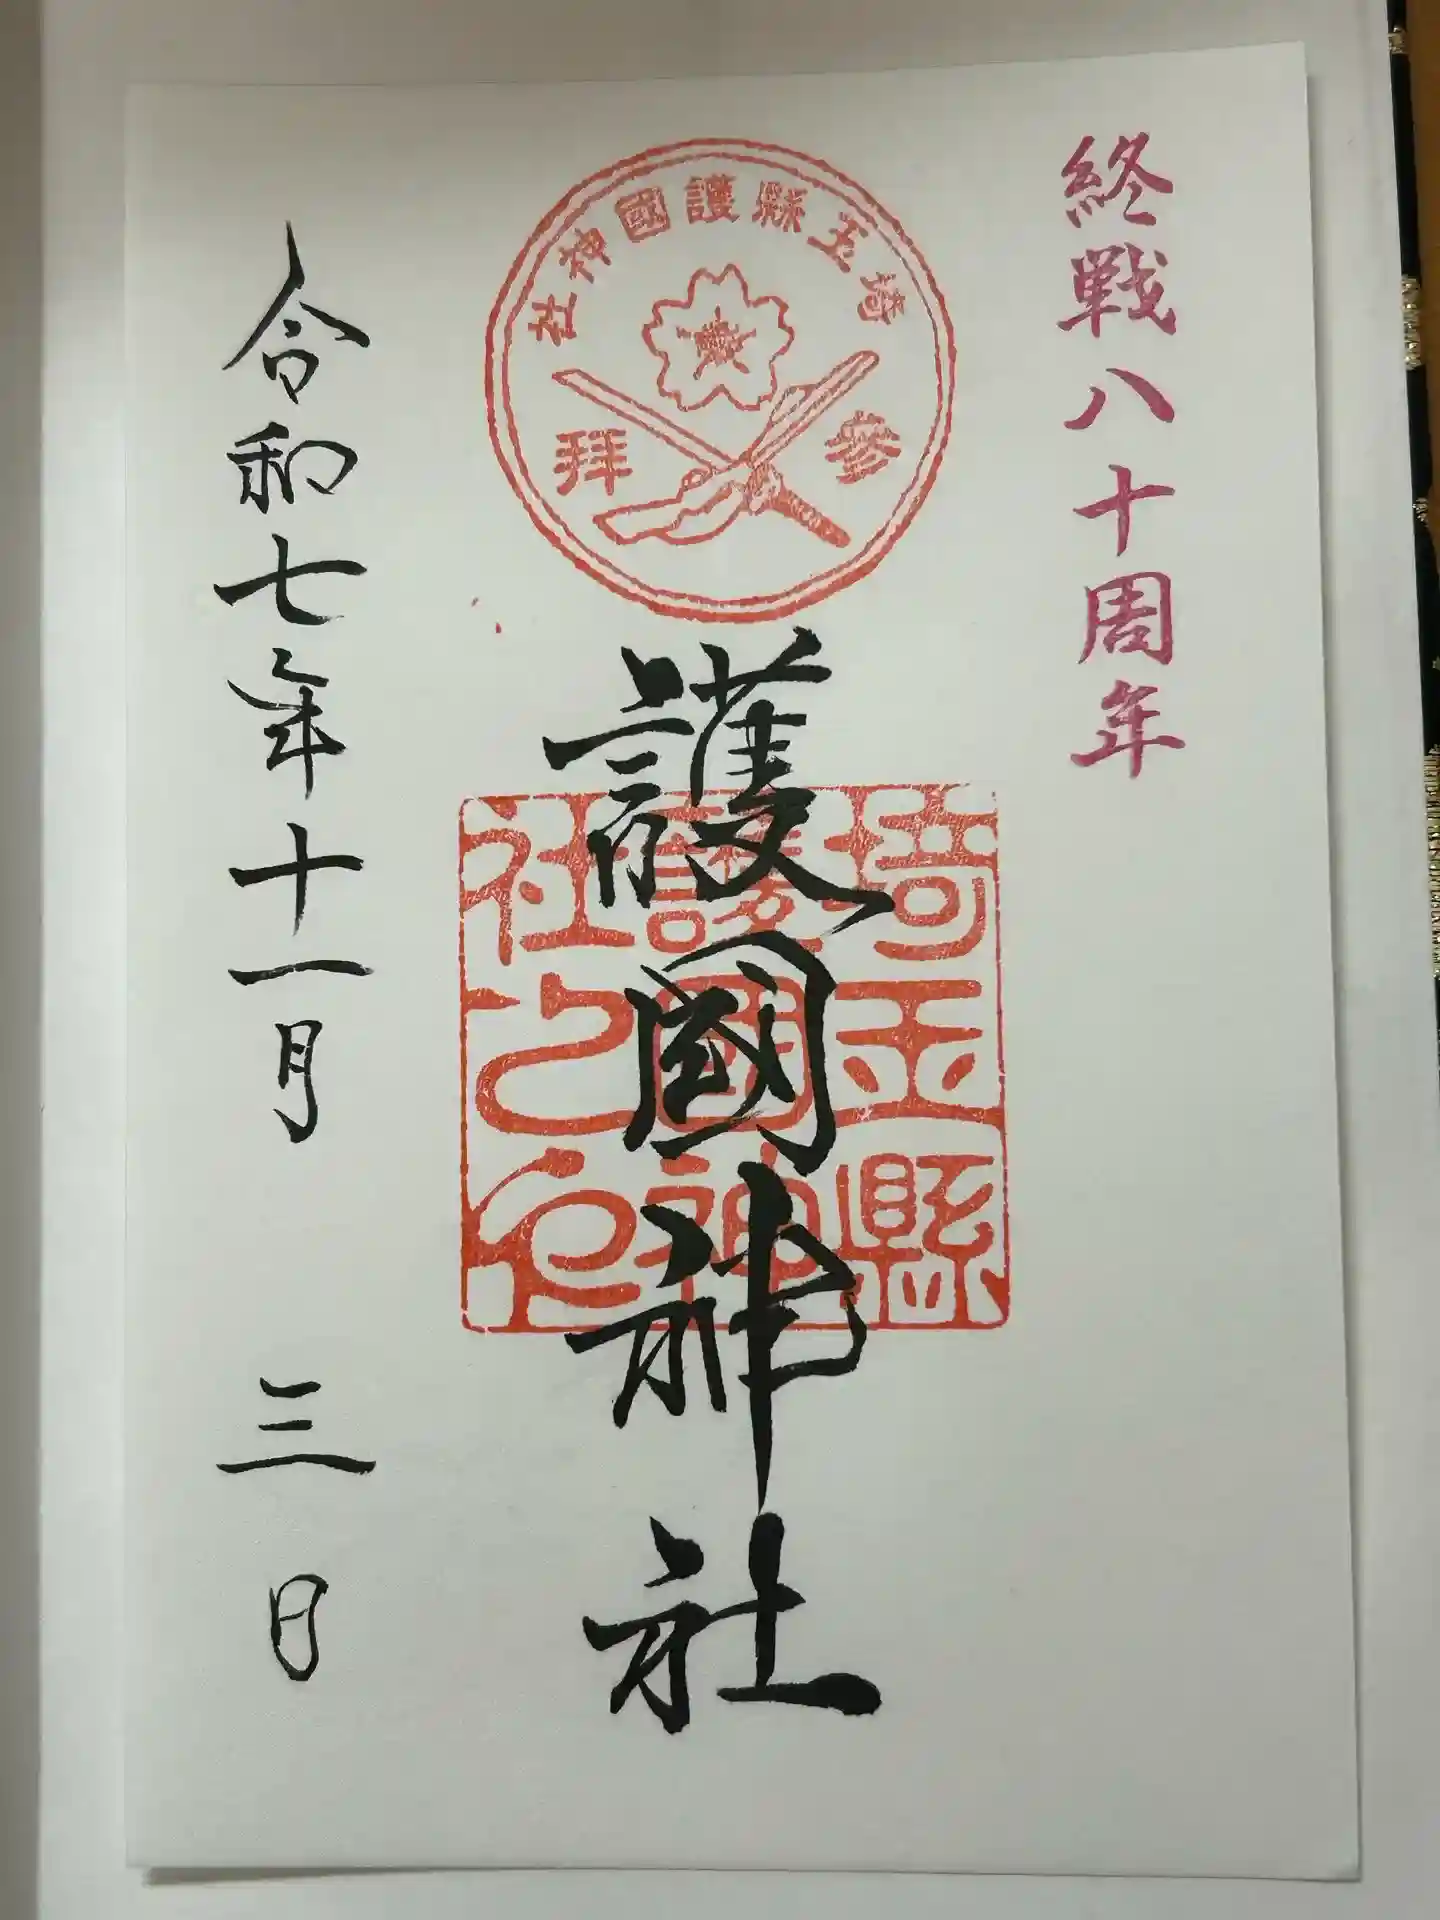 終戦八十周年
埼玉縣護國神社
参拝
護國神社
埼玉縣
護國神
社之印
令和七年十一月三日